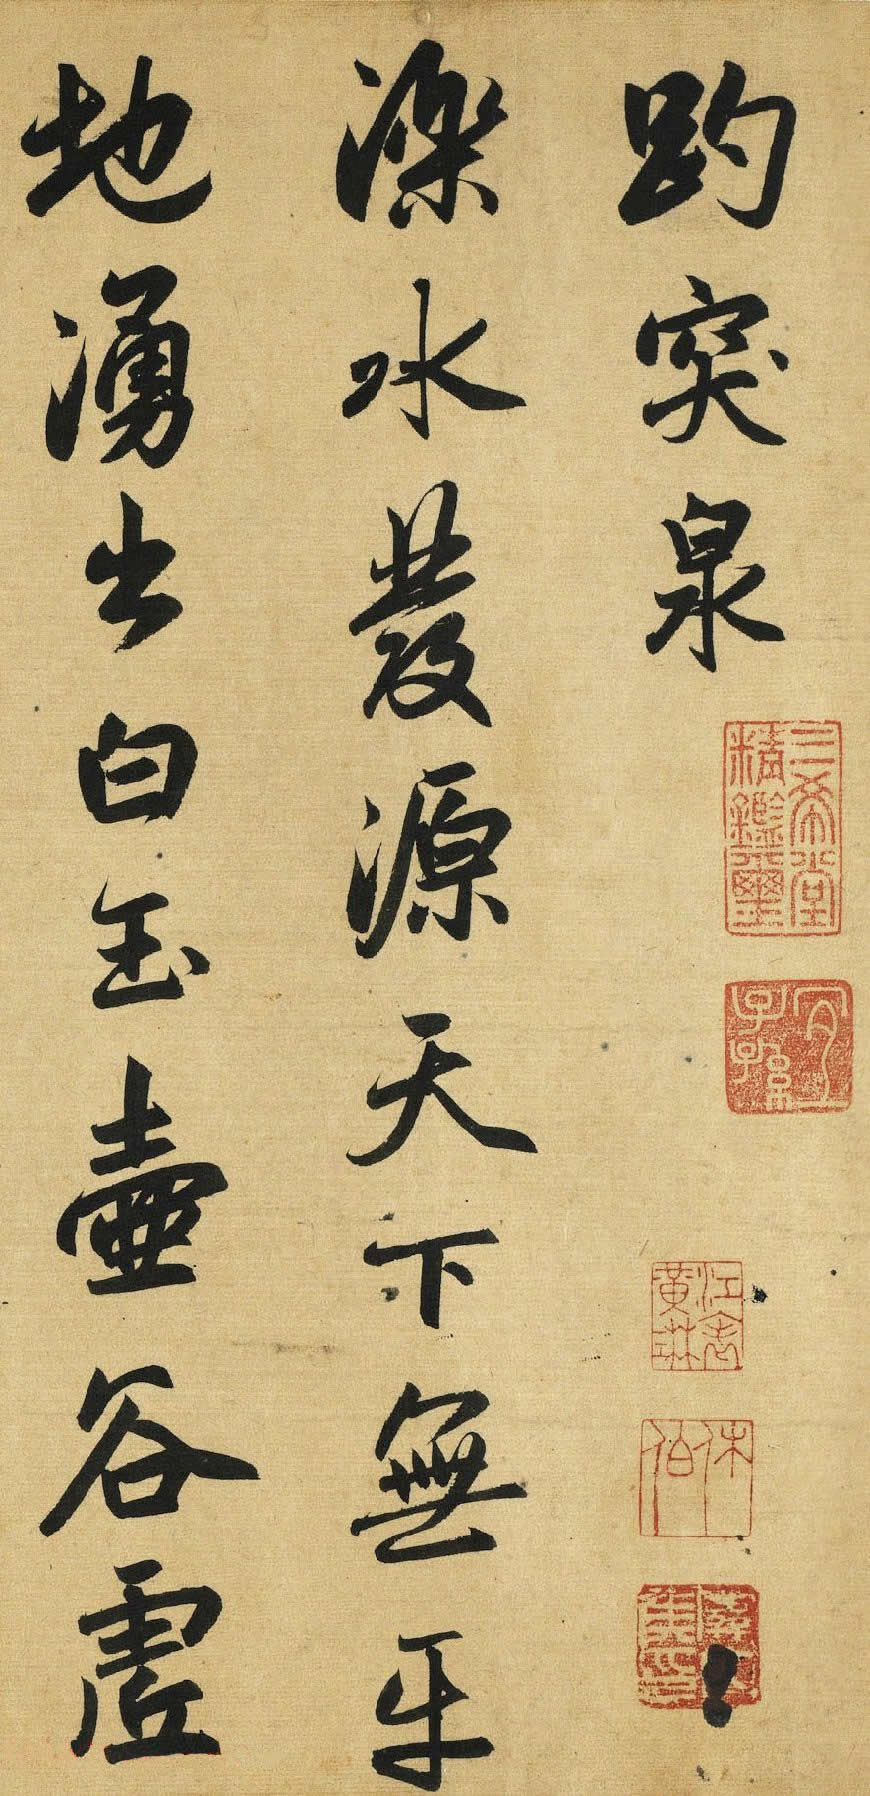 趵突泉
三希堂
精鑑璽
宜
子孫
江表
黃琳
休
伯
濼水發源天下無平
地湧出白玉壺谷虛